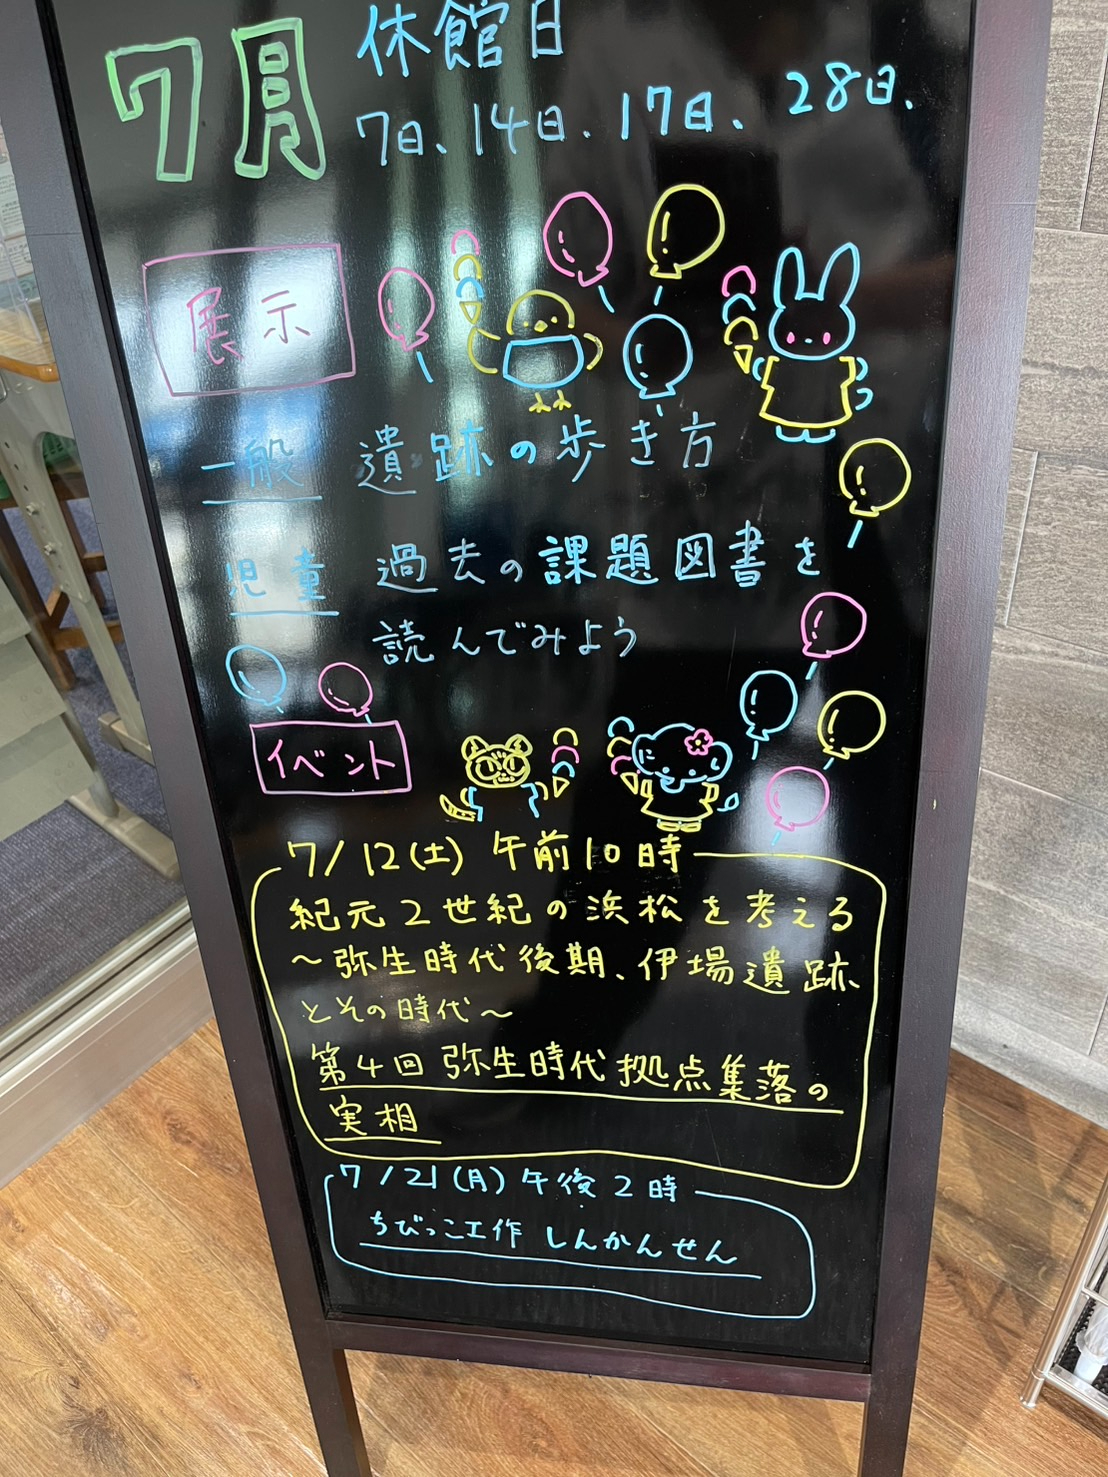 7月
休館日
7日、14日、17日、28日、
展示
一般 遺跡の歩き方
児童 過去の課題図書を
読んでみよう
イベント
7/12(土) 午前10時
紀元2世紀の浜松を考える
～弥生時代後期、伊場遺跡
とその時代～
第4回 弥生時代拠点集落の
実相
7/21(月) 午後2時
ちびっこ工作 しんかんせん